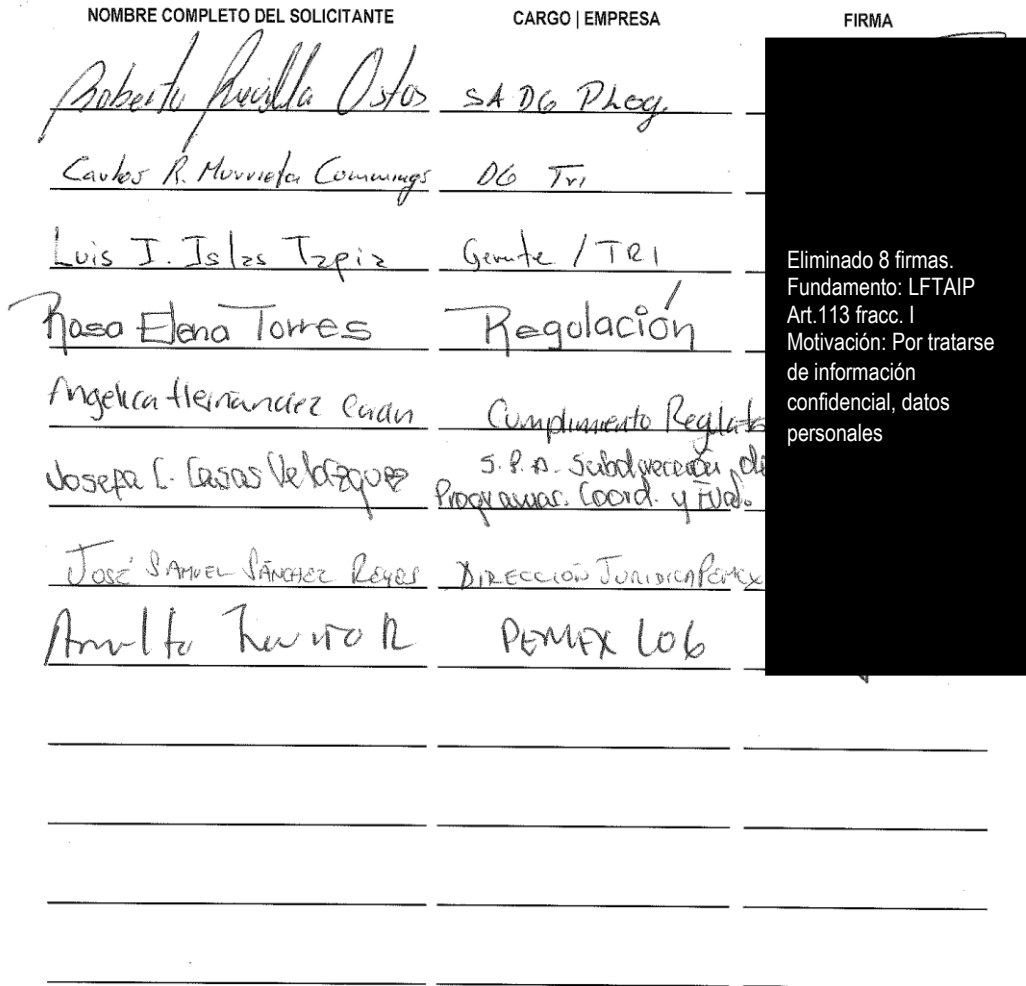 NOMBRE COMPLETO DEL SOLICITANTE CARGO | EMPRESA FIRMA
Roberto Ostos SA DG PLog.
Carlos R. Murrieta Cummings DG Tri
Luis I. Islas Tapia Gerente / TRI
Rosa Elena Torres Regulación
Angelica Hernández Cumplimiento
Josefa C. Casas Velázquez S.P.A. Subdirección, de
Programas. Coord. y Eval.
José SAMUEL SÁNCHEZ REYES DIRECCIÓN JURIDICA PEMEX
PEMEX LOG
Eliminado 8 firmas.
Fundamento: LFTAIP
Art.113 fracc. I
Motivación: Por tratarse
de información
confidencial, datos
personales